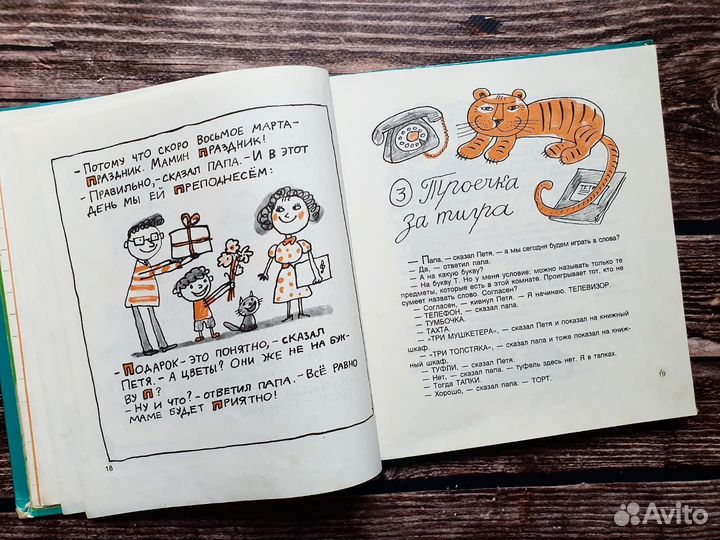 - Потому что скоро Восьмое марта -
праздник. Мамин праздник!
- Правильно, - сказал папа. - И в этот
день мы ей преподнесём:
- Подарок - это понятно, - сказал
Петя. - А цветы? Они же не на бук-
ву П?
- Ну и что? - ответил папа. - Всё равно
маме будет приятно!
18
ТЕТР
3 Троечка
за тигра
— Папа, — сказал Петя, — а мы сегодня будем играть в слова?
— Да, — ответил папа.
— А на какую букву?
— На букву Т. Но у меня условие: можно называть только те
предметы, которые есть в этой комнате. Проигрывает тот, кто не
сумеет назвать слово. Согласен?
— Согласен, — кивнул Петя. — Я начинаю. ТЕЛЕВИЗОР.
— ТЕЛЕФОН, — сказал папа.
— ТУМБОЧКА.
— ТАХТА.
— «ТРИ МУШКЕТЕРА», — сказал Петя и показал на книжный
шкаф.
— «ТРИ ТОЛСТЯКА», — сказал папа и тоже показал на книж-
ный шкаф.
— ТУФЛИ, — сказал Петя.
— Нет, — сказал папа, — туфель здесь нет. Я в тапках.
— Тогда ТАПКИ.
— Хорошо, — сказал папа. — ТОРТ.
19
Avito